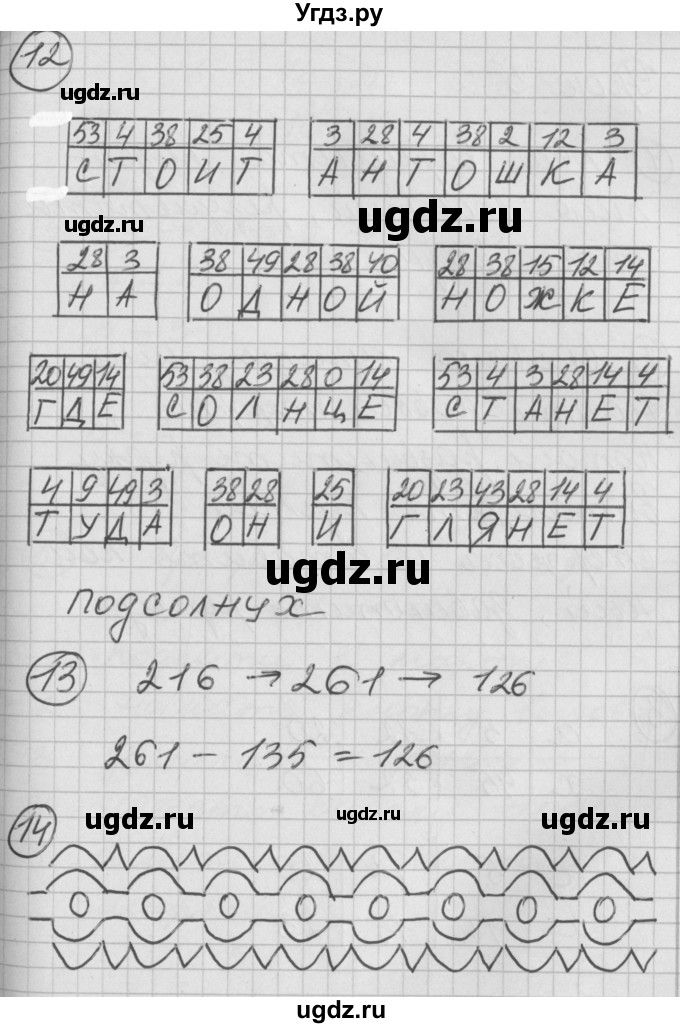 Угдз.ру
12
ugdz.ru
53 4 38 25 4
С Т О И Т
3 28 4 38 2 12 3
А Н Т О Ш К А
ugdz.ru
ugdz.ru
28 3
Н А
38 49 28 38 40
О Д Н О Й
28 38 15 12 14
Н О Ж К Е
20 49 14
Г Д Е
53 38 23 28 0 14
С О Л Н Ц Е
53 4 3 28 14 4
С Т А Н Е Т
4 9 49 3
Т У Д А
38 28
О Н
25
И
20 23 43 28 14 4
Г Л Я Н Е Т
ugdz.ru
подсолнух
13 216 → 261 → 126
261 - 135 = 126
14
ugdz.ru ugdz.ru ugdz.ru
ugdz.ru